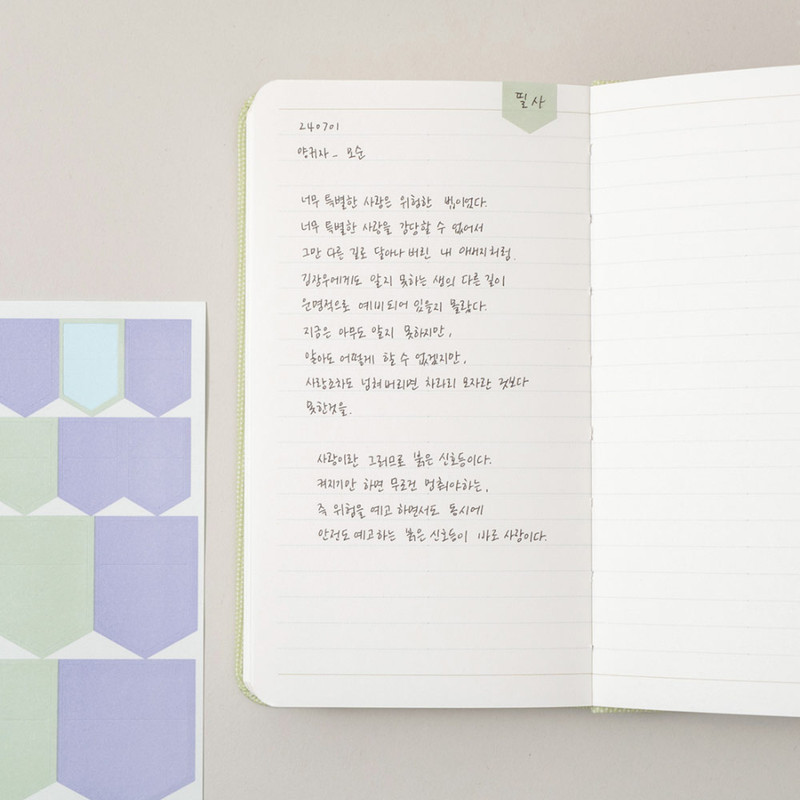 필사
240701
양귀자_ 모순
너무 특별한 사랑은 위험한 법이었다.
너무 특별한 사랑을 감당할 수 없어서
그만 다른 길로 달아나 버린 내 아버지처럼.
김장우에게도 알지 못하는 생의 다른 길이
운명적으로 예비되어 있을지 몰랐다.
지금은 아무도 알지 못하지만,
알아도 어떻게 할 수 없겠지만,
사랑조차도 넘쳐버리면 차라리 모자란 것보다
못한것을.
사랑이란 그러므로 붉은 신호등이다.
켜지기만 하면 무조건 멈춰야하는,
즉 위험을 예고 하면서도 동시에
안전도 예고하는 붉은 신호등이 바로 사랑이다.